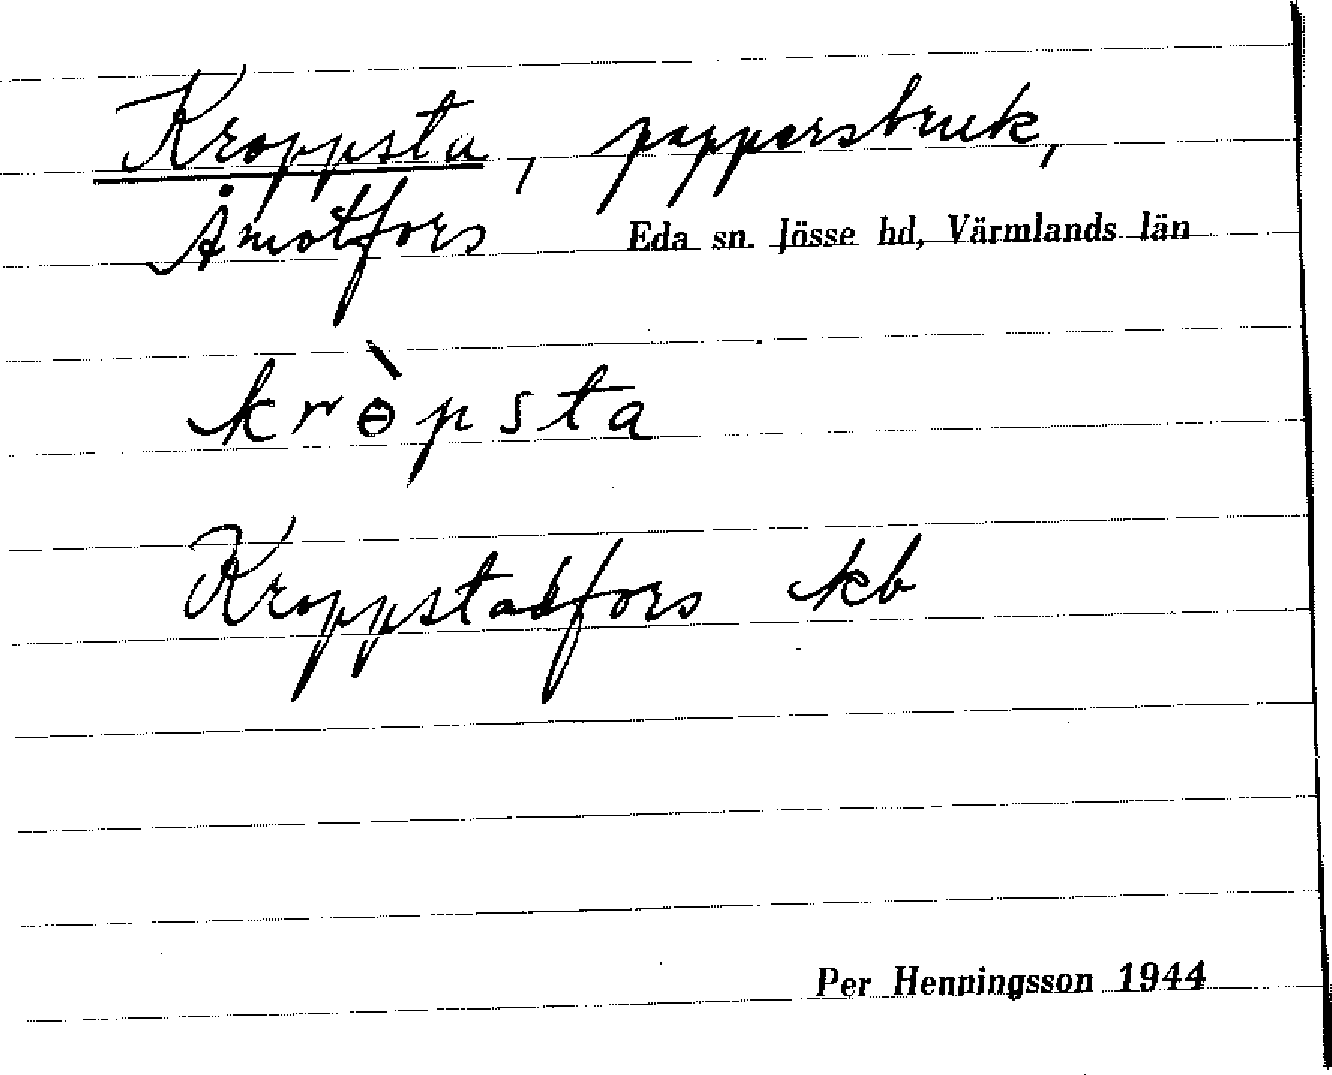 Kroppsta, pappersbruk,
Åmotfors Eda sn. Jösse hd, Värmlands län
krɵ̀psta
Kroppstadfors kb
Per Henningsson 1944